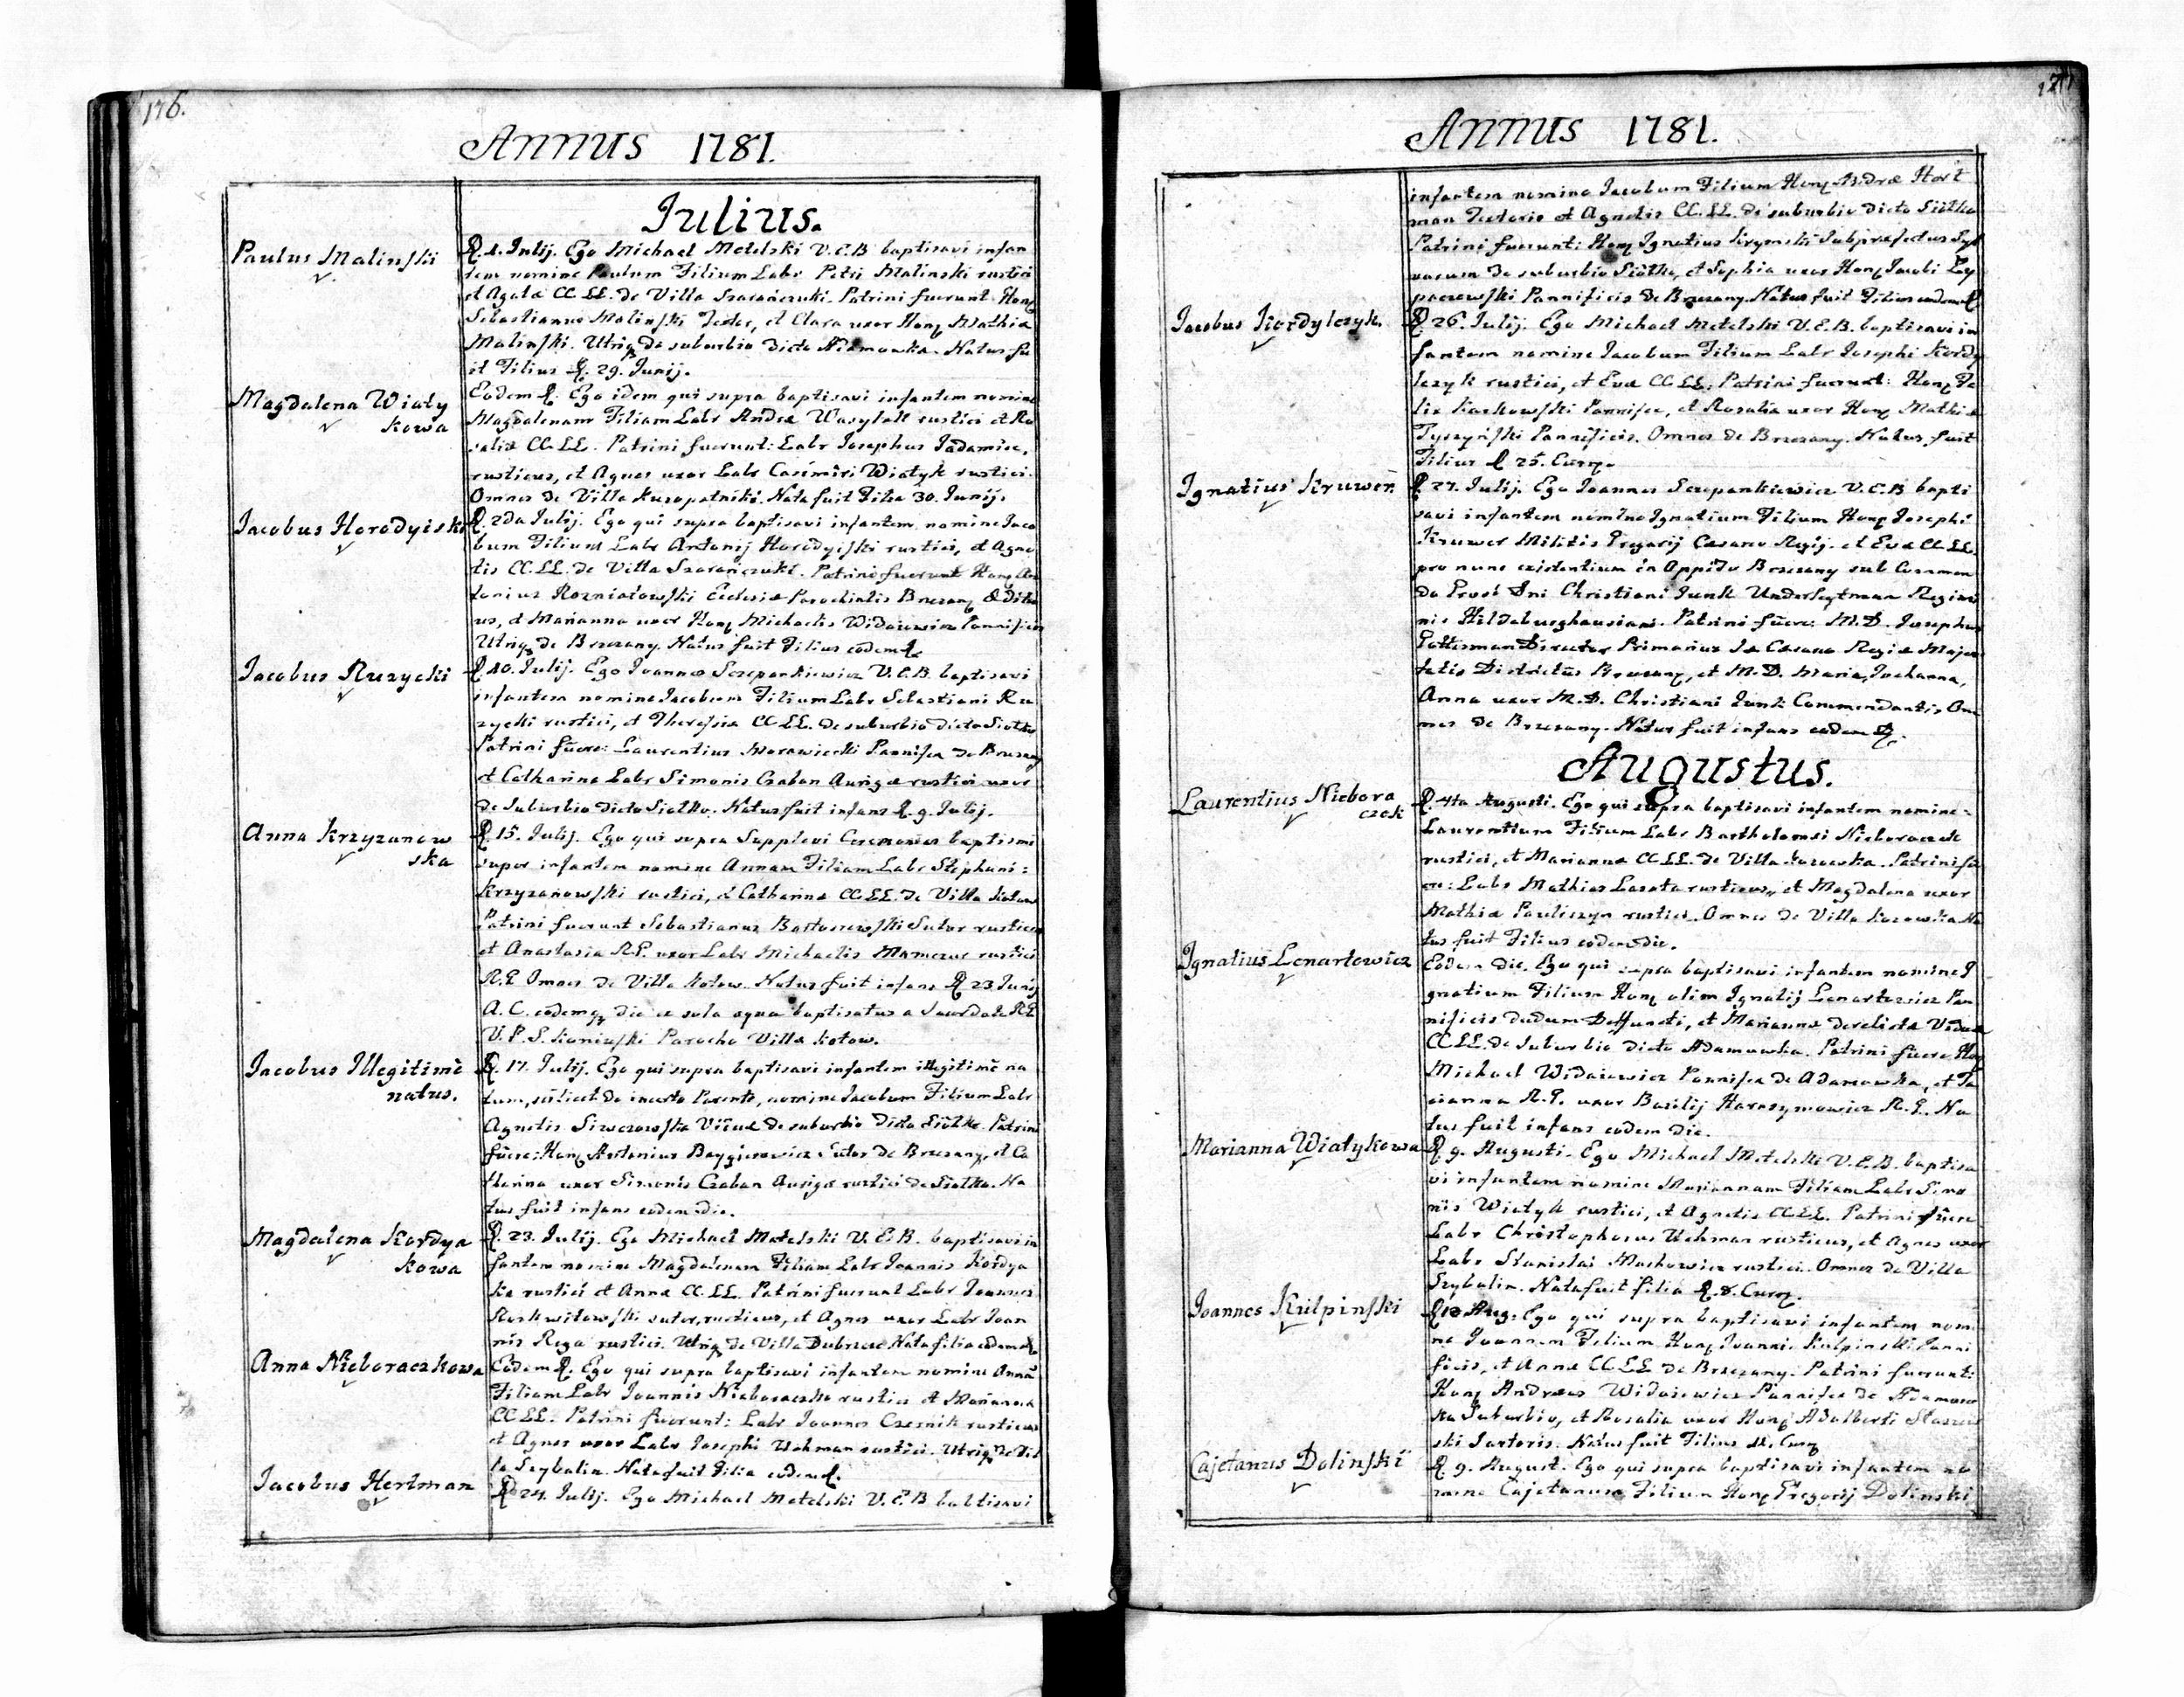 176.
Annus 1781.
Julius.
Paulus Malinski
D. 1. Julij. Ego Michael Metelski V.E.B baptisavi infan
tem nomine Paulum Filium Labr Petri Malinski rustici
et Agatæ CC.LL. de Villa Szarańczuki. Patrini fuerunt Hon
Sebastianus Malinski Textor, et Clara uxor Hon Mathiæ
Malinski. Utriq de suburbio dicto Adamowka. Natus fu
it Filius D. 29. Junij.
Magdalena Wiaty
kowa
Eodem D. Ego idem qui supra baptisavi infantem nomine
Magdalenam Filiam Labr Andreæ Wasylek rustici et Ro
saliæ CC.LL. Patrini fuerunt: Labr Josephus
rusticus, et Agnes uxor Labr Casimiri Wiatyk rustici.
Omnes de Villa Kuropatniki. Nata fuit Filia 30. Junij.
Jacobus Horodyiski
D. 2da Julij. Ego qui supra baptisavi infantem nomine Jaco
bum Filium Labr Antonij Horodyiski rustici, et Agne
tis CC.LL. de Villa Szarańczuki. Patrini fuerunt Hon An
tonius Rozniatowski Ecclesiæ Parochialis Brzezan Æditu
us, et Marianna uxor Hon Michaelis Widaiewicz Pannificis
Utriq de Brzezany. Natus fuit Filius eodem D.
Jacobus Ruzycki
D. 10. Julij. Ego Joannes Szczepankiewicz V.E.B. baptisavi
infantem nomine Jacobum Filium Labr Sebastiani Ru
zycki rustici, et Theresiæ CC.LL. de suburbio dicto Siołko
Patrini fuere: Laurentius Morawiecki Pannifex de Brzezany
et Catharina Labr Simonis Czaban Aurigæ rustici uxor
de Suburbio dicto Siołko. Natus fuit infans D. 9. Julij.
Anna Krzyzanow
ska
D. 15. Julij. Ego qui supra Supplevi Ceremonias baptismi
super infantem nomine Annam Filiam Labr Stephani
Krzyzanowski rustici, et Catharinæ CC.LL. de Villa Kotow
Patrini fuerunt Sebastianus Bartoszewski Sutor rusticus
et Anastasia R.G. uxor Labr Michaelis rustici
R.G. Omnes de Villa Kotow. Natus fuit infans D 23. Junij
A. C. eodemq die ex sola aqua baptisatus a Sacerdote R.G.
V. P. S. Koniuski Parocho Villæ Kotow.
Jacobus Illegitimè
natus.
D. 17. Julij. Ego qui supra baptisavi infantem illegitimè na
tum, scilicet de incerto Parente, nomine Jacobum Filium Labr
Agnetis Viduæ de suburbio dicto Siołko. Patrini
fuere: Hon Antonius Sutor de Brzezany, et Ca
tharina uxor Simonis Czaban Aurigæ rustici de Siołko. Na
tus fuit infans eodem die.
Magdalena Kordya
kowa
D. 23. Julij. Ego Michael Metelski V.E.B. baptisavi in
fantem nomine Magdalenam Filiam Labr Joannis Kordya
ka rustici et Annæ CC.LL. Patrini fuerunt Labr Joannes
sutor, rusticus, et Agnes uxor Labr Joan
nis Rega rustici. Utriq de Villa Dubszcze Nata filia eodem D.
Anna Nieboraczkowa
Eodem D. Ego qui supra baptisavi infantem nomine Annã
Filiam Labr Joannis Nieboraczka rustici et Mariannæ
CC.LL. Patrini fuerunt: Labr Joannes Czernik rusticus
et Agnes uxor Labr Josephi Uchman rustici. Utriq de Vil
la Szybalin. Nata fuit Filia eodem D.
Jacobus Hertman
D. 24. Julij. Ego Michael Metelski V.E.B babtisavi
Annus 1781.
infantem nomine Jacobum Filium Hon Andreæ Hart
man Textoris et Agnetis CC.LL. de suburbio dicto Siołko
Patrini fuerunt: Hon Ignatius Krymski Subpræfectus Syl
varum de suburbio Siołko, et Sophia uxor Hon Jacobi
Pannificis de Brzezany. Natus fuit Filius eodem D.
Jacobus Kordylczyk.
D. 26. Julij. Ego Michael Metelski V.E.B. baptisavi in
fantem nomine Jacobum Filium Labr Josephi Kordy
lczyk rustici, et Evæ CC.LL. Patrini fuerunt: Hon Fe
lix Pannifex, et Rosalia uxor Hon Mathiæ
Tyszyński Pannificis. Omnes de Brzezany. Natus fuit
Filius D 25. Curr.
Ignatius Kruwer
D. 27. Julij. Ego Joannes Szczepankiewicz V.E.B. bapti
savi infantem nomine Ignatium Filium Hon Josephi
Kruwer Militis Gregarij Cæsareo Regij. et Evæ CC.LL.
pro nunc existentium in Oppido Brzezany sub Commen
da Dni Christiani Junk Underleytman Regimi
nis Hildburghausiani. Patrini fuere: M.D. Josephus
Director Primarius Sæ Cæsareo Regiæ Majes
tatis Districtus Brzezan, et M.D. Maria, Joehanna,
Anna uxor M.D. Christiani Junk Commendantis Om
nes de Brzezany. Natus fuit infans eodem D.
Augustus.
Laurentius Niebora
czek
D. 4ta Augusti. Ego qui supra baptisavi infantem nomine
Laurentium Filium Labr Bartholomæi Nieboraczek
rustici, et Mariannæ CC.LL. de Villa Kozowka. Patrini fu
ere: Labr Mathias Lasota rusticus, et Magdalena uxor
Mathiæ Pauliszyn rustici. Omnes de Villa Kozowka Na
tus fuit Filius eodem die.
Ignatius Lenartowicz
Eodem die. Ego qui supra baptisavi infantem nomine I
gnatium Filium Hon olim Ignatij Lenartowicz Pan
nificis dudum Deffuncti, et Mariannæ derelictæ Viduæ
CC.LL. de Suburbio dicto Adamowka. Patrini fuere Hon
Michael Widaiewicz Pannifex de Adamowka, et Ta
cianna R.G. uxor Basilij Harasymowicz R.G. Na
tus fuit infans eodem die.
Marianna Wiatykowa
D. 9. Augusti. Ego Michael Metelski V.E.B. baptisa
vi infantem nomine Mariannam Filiam Labr Simo
nis Wiatyk rustici, et Agnetis CC.LL. Patrini fuere
Labr Christophorus Uchman rusticus, et Agnes uxor
Labr Stanislai Machowicz rustici. Omnes de Villa
Szybalin. Nata fuit filia D. 8. Curr.
Joannes Kulpinski
D. 12 Aug. Ego qui supra baptisavi infantem nomi
ne Joannem Filium Hon Joannis Kulpinski Panni
ficis, et Annæ CC.LL de Brzezany. Patrini fuerunt:
Hon Andreas Widaiewicz Pannifex de Adamow
ka Suburbio, et Rosalia uxor Hon Adalberti
ski Sartoris. Natus fuit Filius 11. Curr
Cajetanus Dolinski
D. 9. August. Ego qui supra baptisavi infantem no
mine Cajetanum Filium Hon Gregorij Dolinski